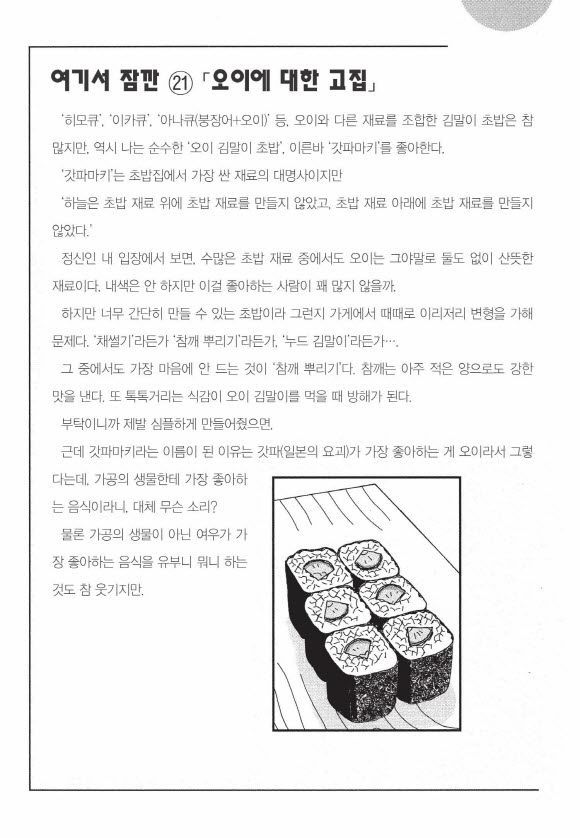 여기서 잠깐 ㉑ 「오이에 대한 고집」
'히모큐', '이카큐', '아나큐(붕장어+오이)' 등, 오이와 다른 재료를 조합한 김말이 초밥은 참
많지만, 역시 나는 순수한 '오이 김말이 초밥', 이른바 '갓파마키'를 좋아한다.
'갓파마키'는 초밥집에서 가장 싼 재료의 대명사이지만
'하늘은 초밥 재료 위에 초밥 재료를 만들지 않았고, 초밥 재료 아래에 초밥 재료를 만들지
않았다.'
정신인 내 입장에서 보면, 수많은 초밥 재료 중에서도 오이는 그야말로 둘도 없이 산뜻한
재료이다. 내색은 안 하지만 이걸 좋아하는 사람이 꽤 많지 않을까.
하지만 너무 간단히 만들 수 있는 초밥이라 그런지 가게에서 때때로 이리저리 변형을 가해
문제다. '채썰기'라든가 '참깨 뿌리기'라든가, '누드 김말이'라든가….
그 중에서도 가장 마음에 안 드는 것이 '참깨 뿌리기'다. 참깨는 아주 적은 양으로도 강한
맛을 낸다. 또 톡톡거리는 식감이 오이 김말이를 먹을 때 방해가 된다.
부탁이니까 제발 심플하게 만들어줬으면.
근데 갓파마키라는 이름이 된 이유는 갓파(일본의 요괴)가 가장 좋아하는 게 오이라서 그렇
다는데, 가공의 생물한테 가장 좋아하
는 음식이라니, 대체 무슨 소리?
물론 가공의 생물이 아닌 여우가 가
장 좋아하는 음식을 유부니 뭐니 하는
것도 참 웃기지만.